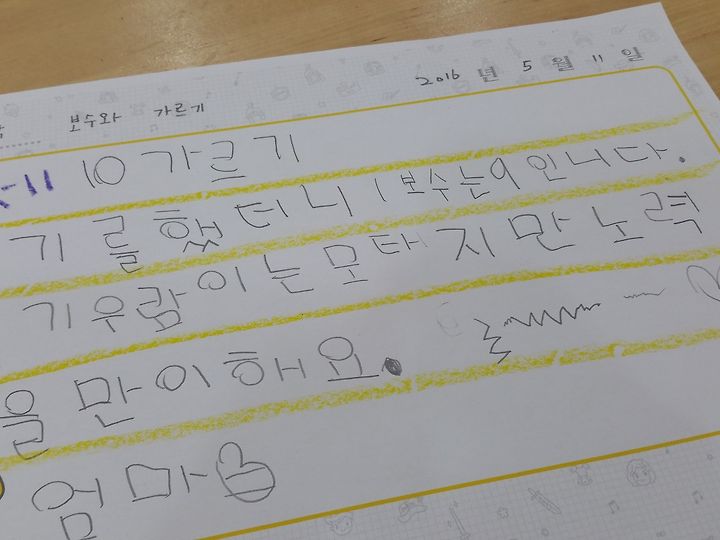 2016 년 5 월 11 일
보수와 가르기
-11 10 가르기
기 를 했 더 니 1 보수는 9 입니다.
기 우람이는 모태지만 노력
을 만이해요.
엄마